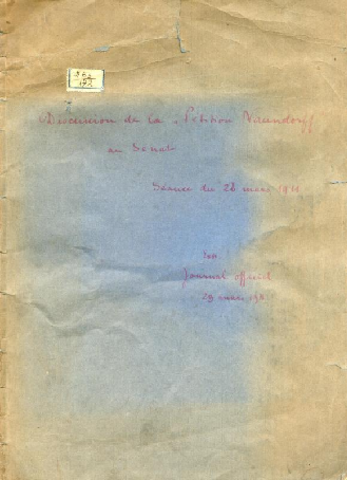 Discussion de la Pétition Naundorff
au Sénat
Séance du 28 mars 1911
Journal officiel
29 mars